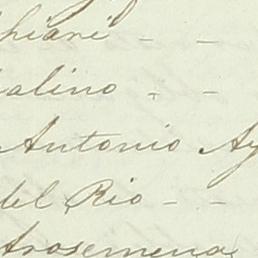 hiari - -
alino - -
Antonio Ay
del Rio - -
trosemena